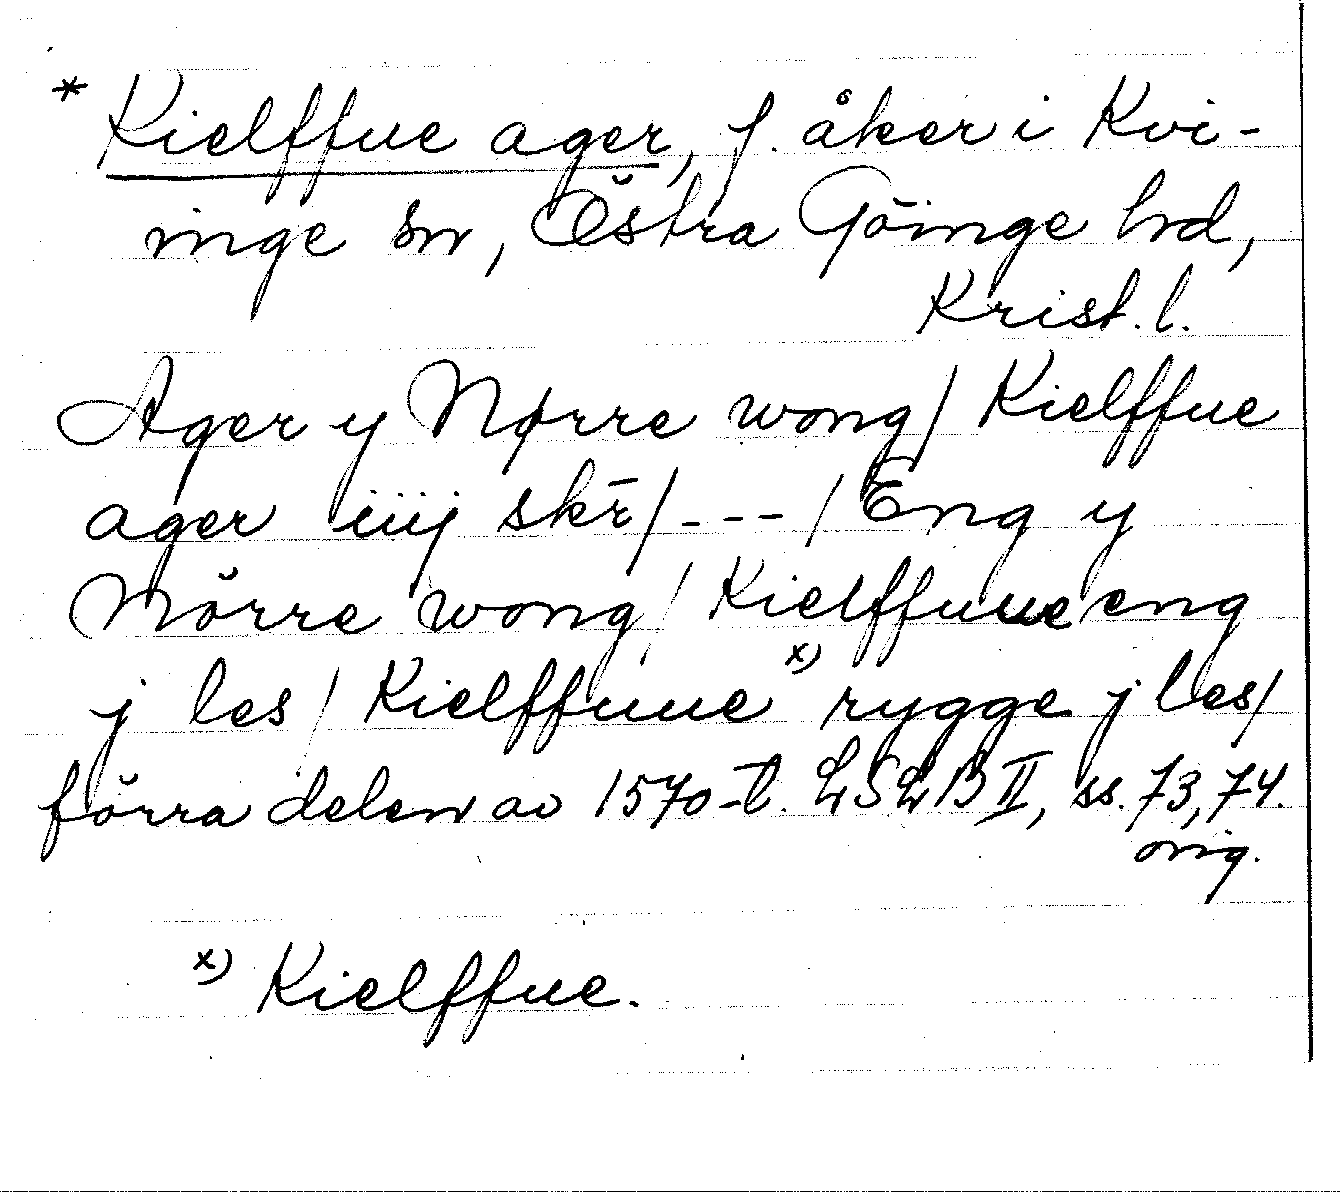 * Kielffue ager, f. åker i Kvi-
inge sn, Östra Göinge hd,
Krist. l.
Ager y Nørre wong/ Kielffue
ager iiij skr̄/ - - - / Eng y
Nörre wong/ Kielffuue eng
j les/ Kielffuue x) rygge j les/
förra delen av 1570-t. LSLB II, ss. 73, 74.
orig.
x) Kielffue.